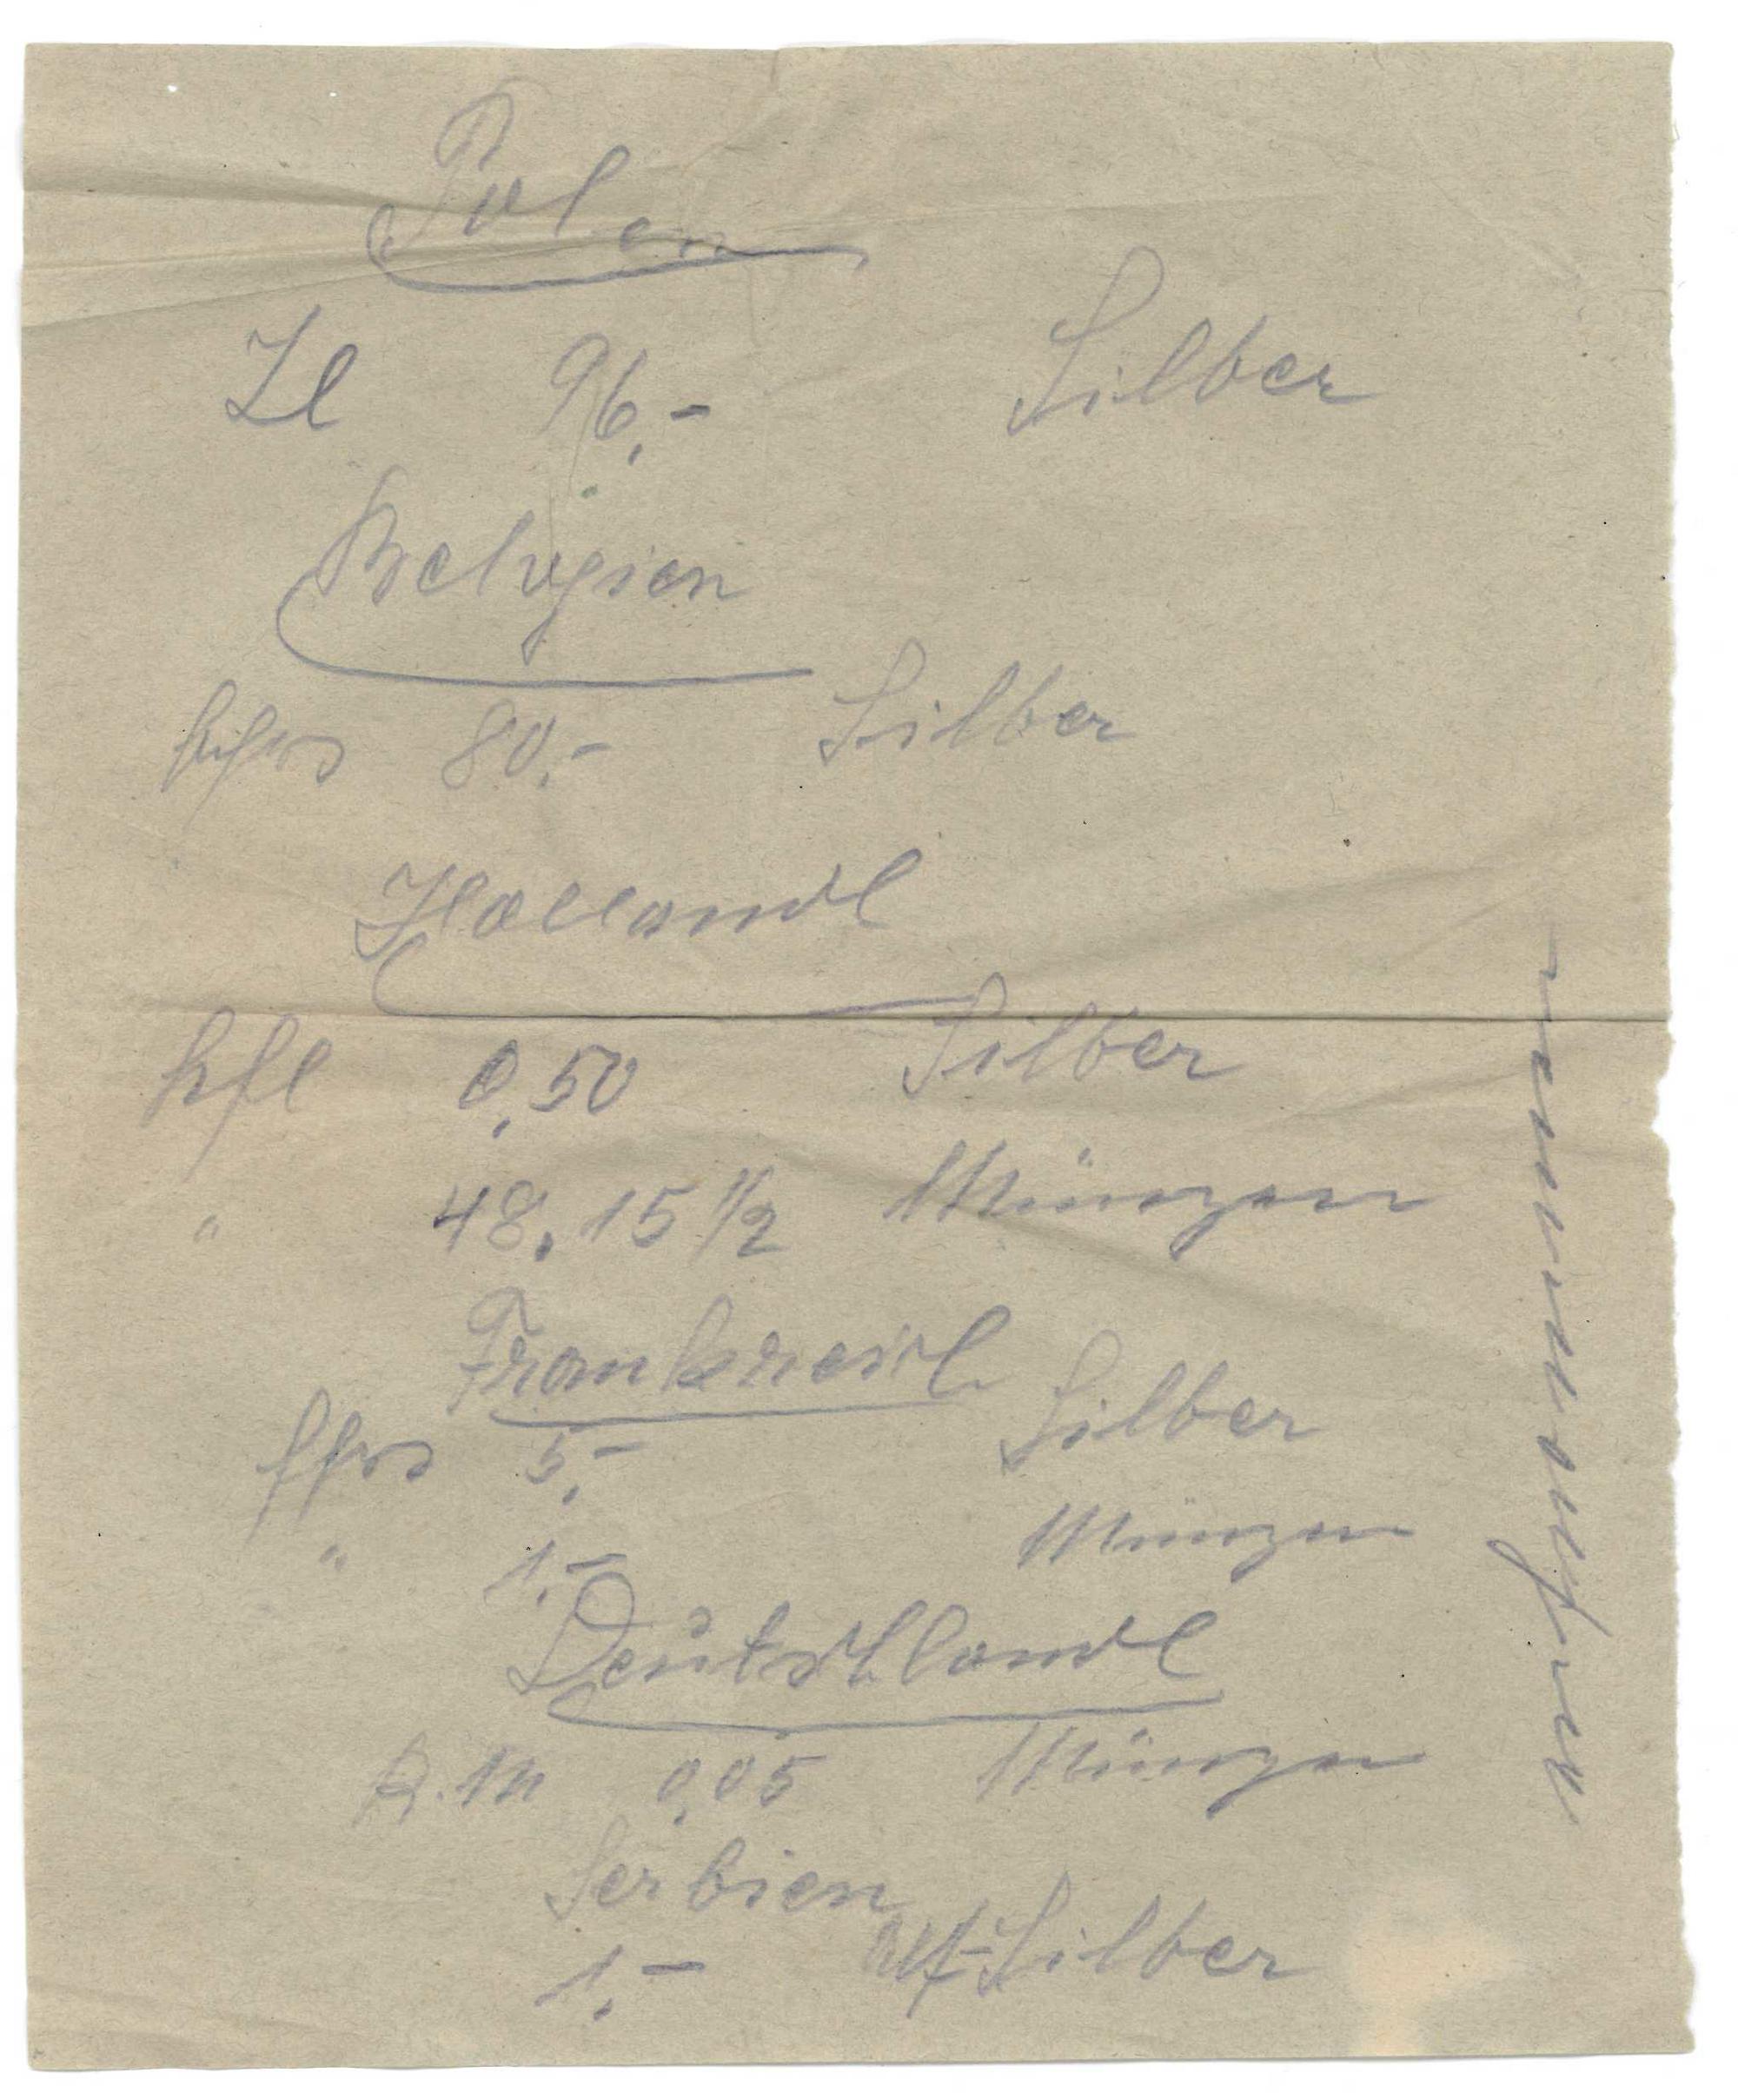 Polen
Zl 96,- Silber
Belgien
bfrs 80,- Silber
Holland
hfl 0,50 Silber
" 48,15 1/2 Münzen
Frankreich
ffrs 5,- Silber
" 1,- Münzen
Deutschland
R.M 0,05 Münzen
Serbien
1,- Alt-Silber